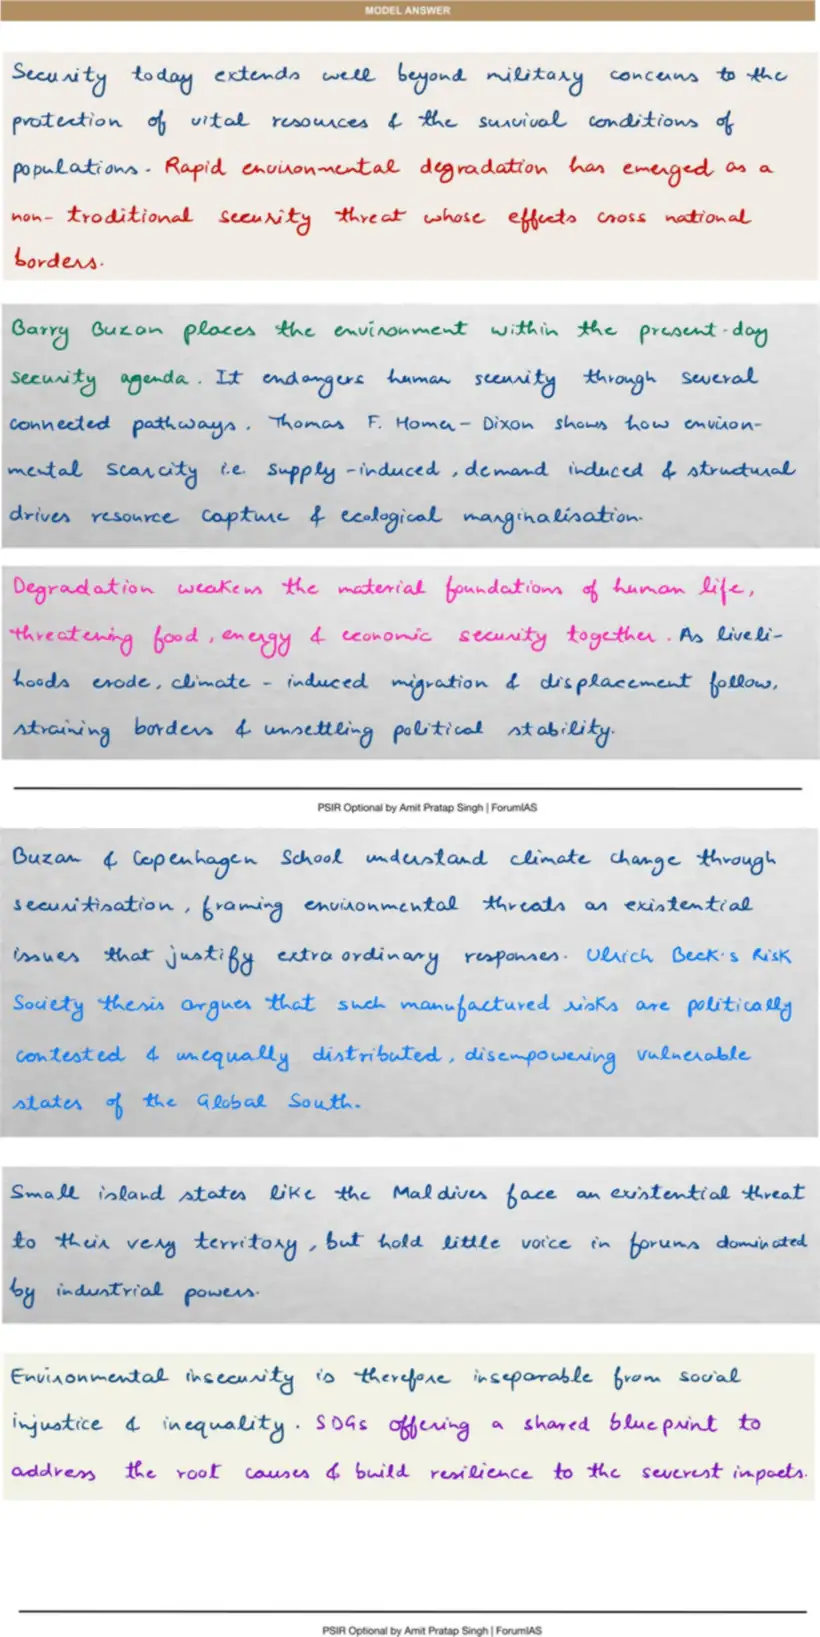 MODEL ANSWER
Security today extends well beyond military concerns to the
protection of vital resources & the survival conditions of
populations. Rapid environmental degradation has emerged as a
non- traditional security threat whose effects cross national
borders.
Barry Buzan places the environment within the present-day
security agenda. It endangers human security through several
connected pathways. Thomas F. Homer-Dixon shows how environ-
mental scarcity i.e. supply-induced, demand induced & structural
drives resource capture & ecological marginalisation.
Degradation weakens the material foundations of human life,
threatening food, energy & economic security together. As liveli-
hoods erode, climate-induced migration & displacement follow,
straining borders & unsettling political stability.
PSIR Optional by Amit Pratap Singh | ForumIAS
Buzan & Copenhagen School understand climate change through
securitisation, framing environmental threats as existential
issues that justify extra ordinary responses. Ulrich Beck's Risk
Society thesis argues that such manufactured risks are politically
contested & unequally distributed, disempowering vulnerable
states of the Global South.
Small island states like the Maldives face an existential threat
to their very territory, but hold little voice in forums dominated
by industrial powers.
Environmental insecurity is therefore inseparable from social
injustice & inequality. SDGs offering a shared blueprint to
address the root causes & build resilience to the severest impacts.
PSIR Optional by Amit Pratap Singh | ForumIAS